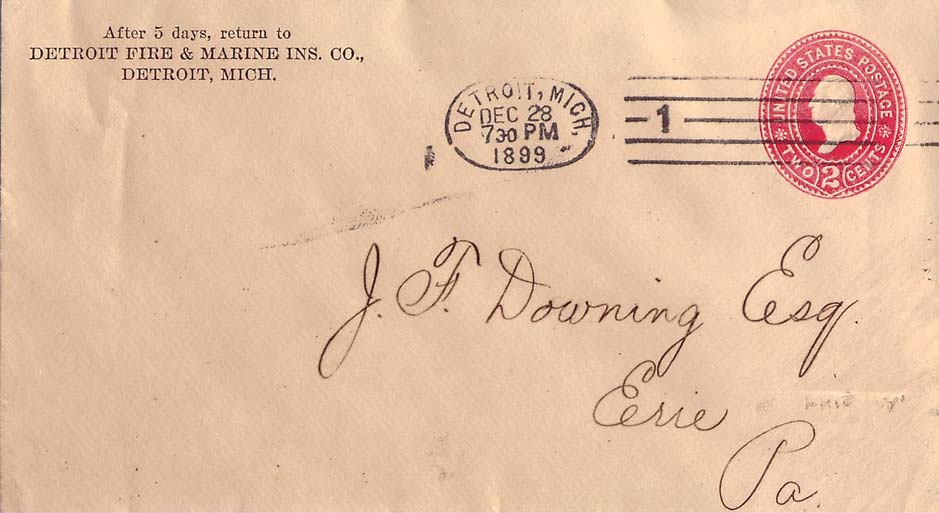 After 5 days, return to
DETROIT FIRE & MARINE INS. CO.,
DETROIT, MICH.
DETROIT, MICH.
DEC 28
730 PM
1899
1
UNITED STATES POSTAGE
TWO 2 CENTS
J. F. Downing Esq.
Erie
Pa.